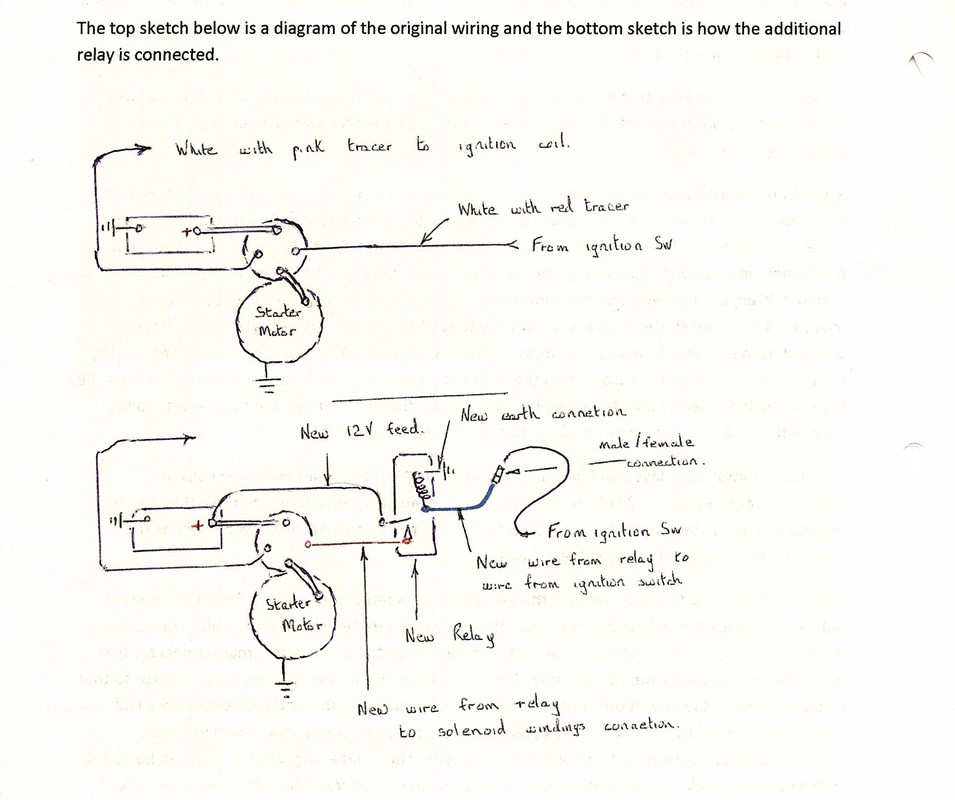 The top sketch below is a diagram of the original wiring and the bottom sketch is how the additional
relay is connected.
White with pink tracer to ignition coil.
White with red tracer
From ignition Sw
+
Starter
Motor
New earth connetion
New 12V feed.
male / female
connection.
+
From ignition Sw
New wire from relay to
wire from ignition switch
Starter
Motor
New Relay
New wire from relay
to solenoid windings connetion.